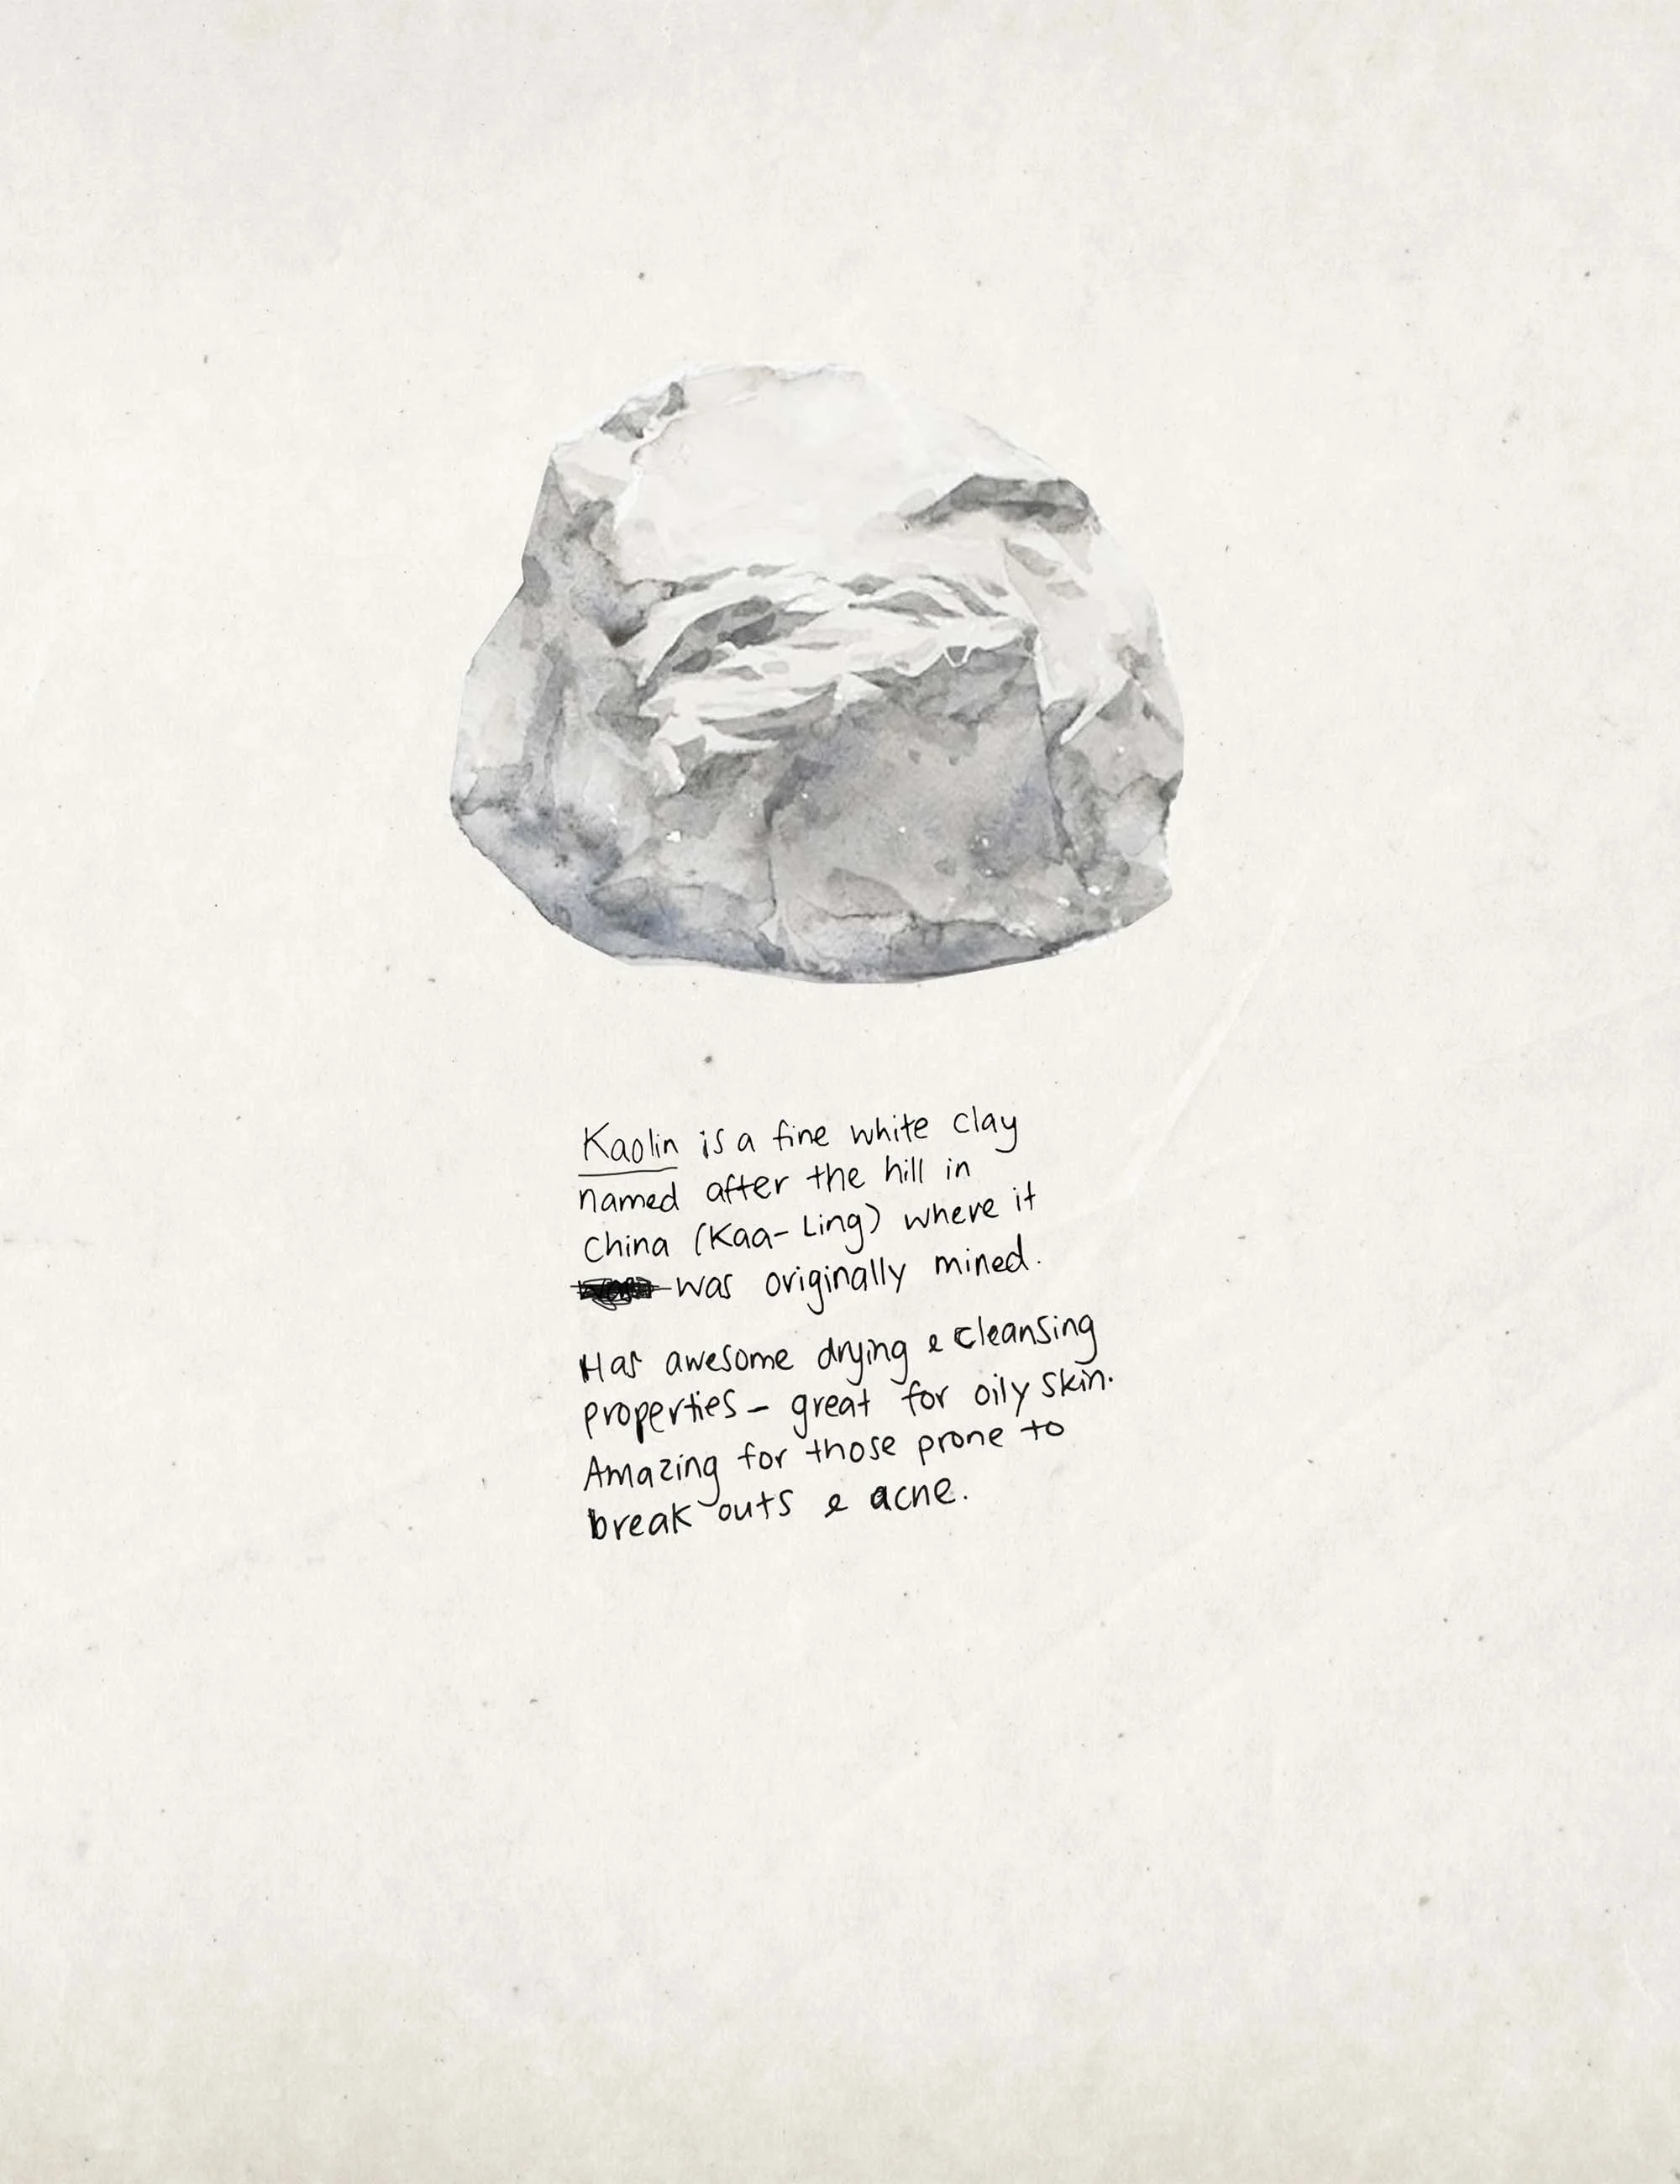 Kaolin is a fine white clay
named after the hill in
China (Kaa-Ling) where it
was originally mined.
Has awesome drying & cleansing
properties - great for oily skin.
Amazing for those prone to
break outs & acne.